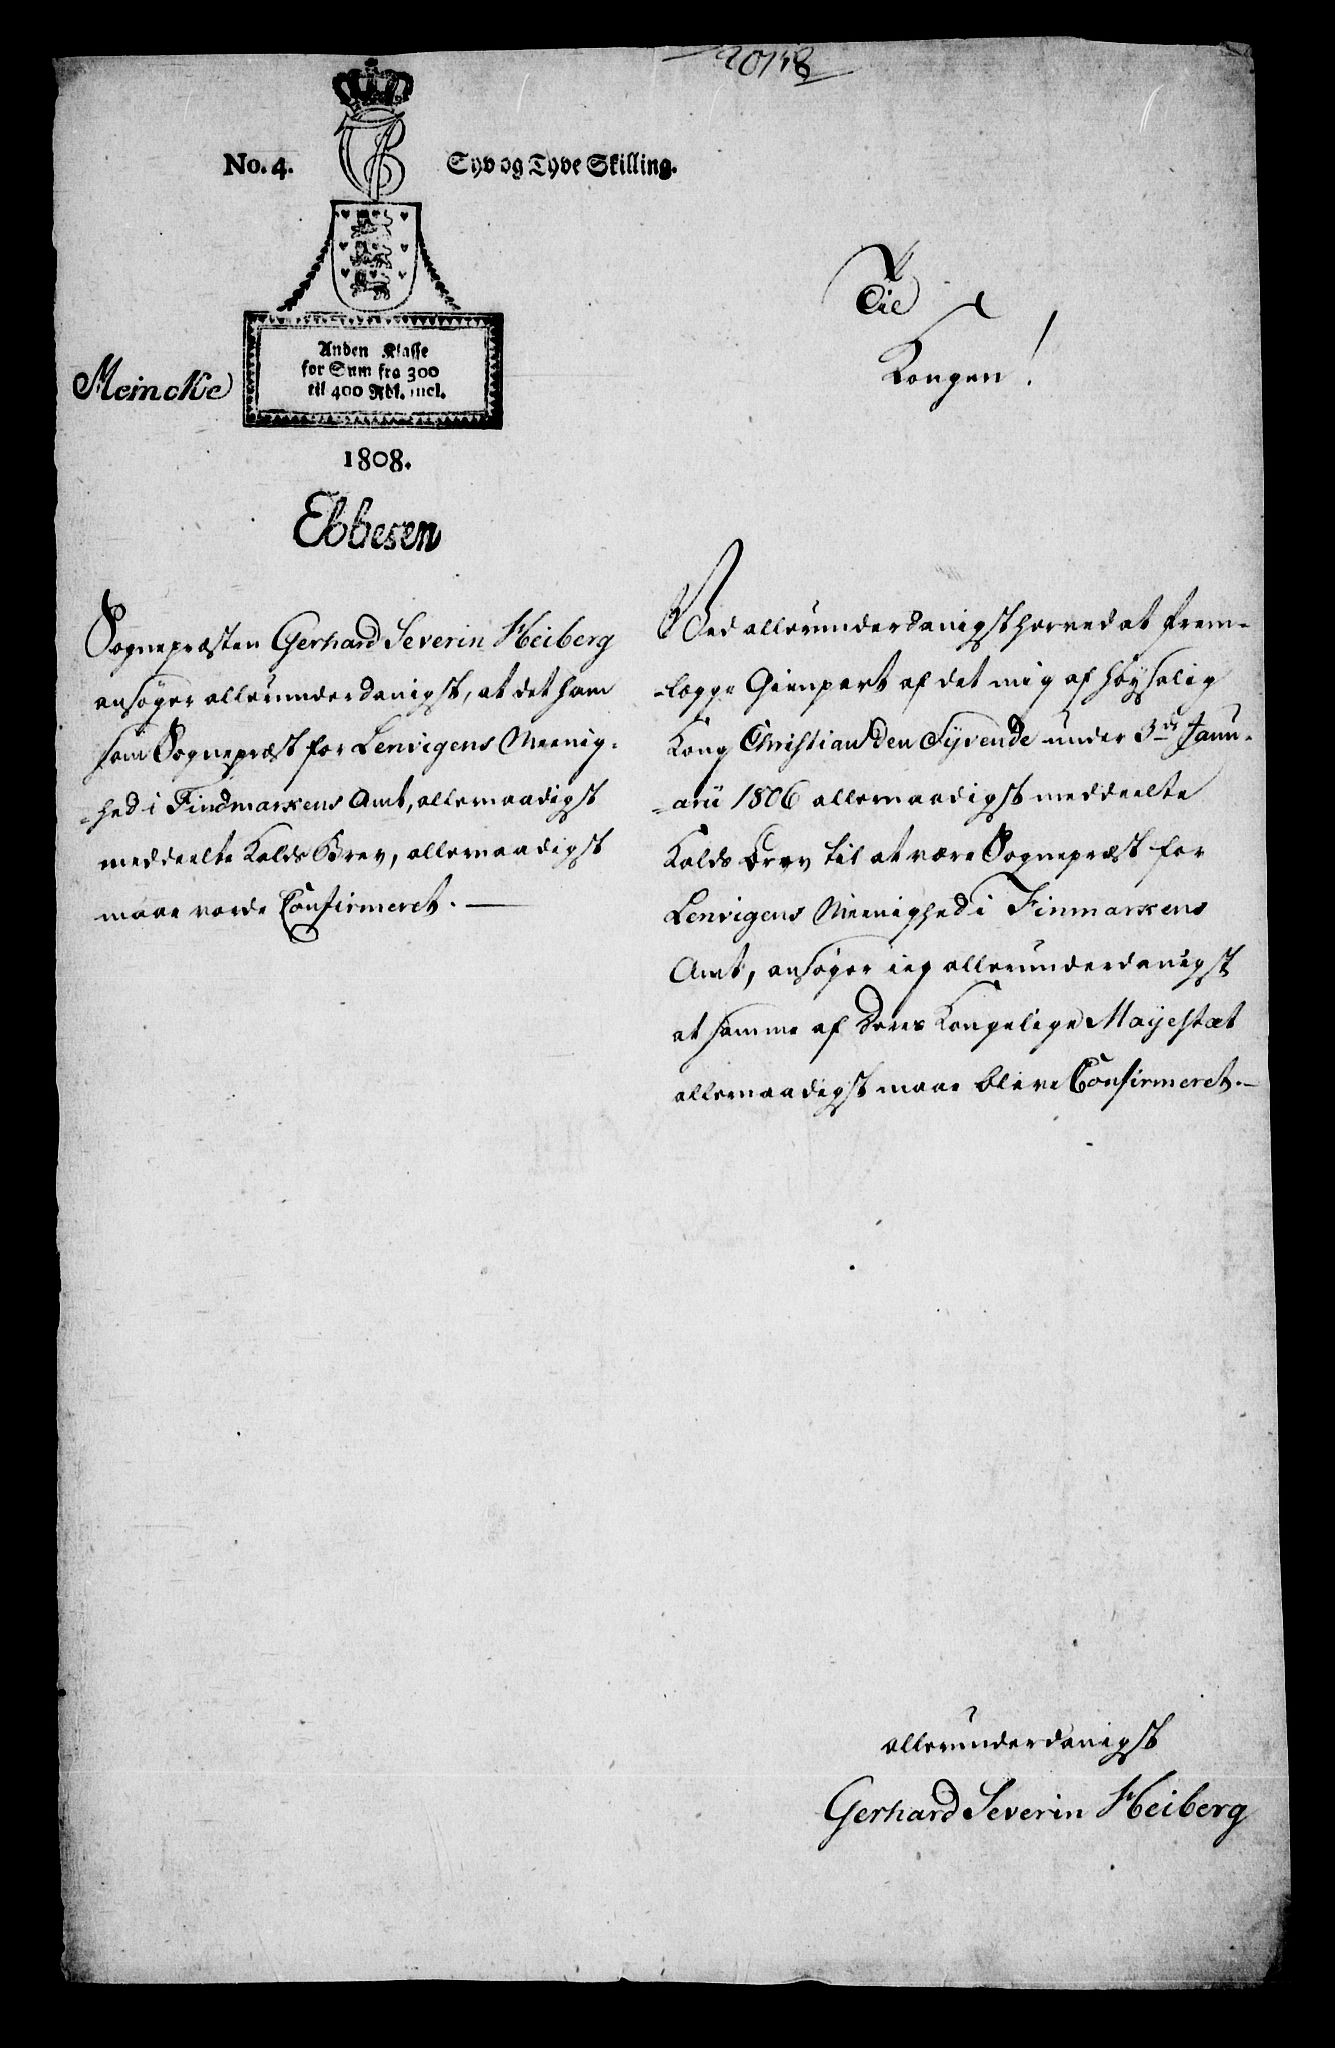 20158
No. 4.
Syv og Tyve Skilling.
Anden Klasse
for Sum fra 300
til 400 Rdl. incl.
Meincke
1808.
Ebbesen
Til
Kongen!
Sognepræsten Gerhard Severin Heiberg
ansøger allerunderdanigst, at det ham
som Sognepræst for Lenvigens Meenig-
-hed i Findmarkens Amt, allernaadigst
meddeelte Kalds Brev, allernaadigst
maae vorde Confirmeret. —
Ved allerunderdanigst herved at frem-
-lægge Gienpart af det mig af høysalig
Kong Christian den Syvende under 3de Janu-
-arii 1806 allernaadigst meddeelte
Kalds Brev til at være Sognepræst for
Lenvigens Meenighed i Finmarkens
Amt, ansøger ieg allerunderdanigst
at samme af Deres Kongelige Mayestæt
allernaadigst maae blive Confirmeret. —
allerunderdanigst
Gerhard Severin Heiberg